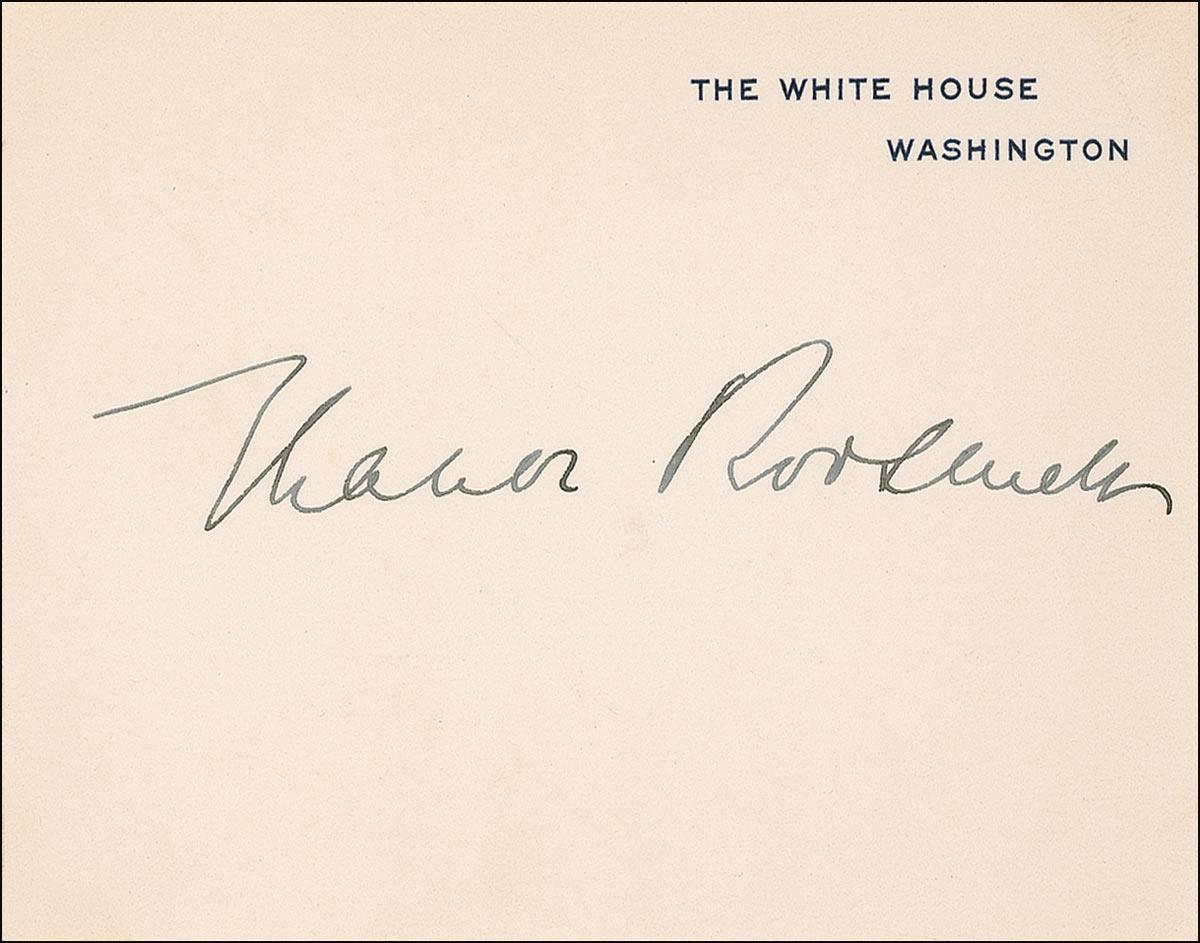 THE WHITE HOUSE
WASHINGTON
Eleanor Roosevelt